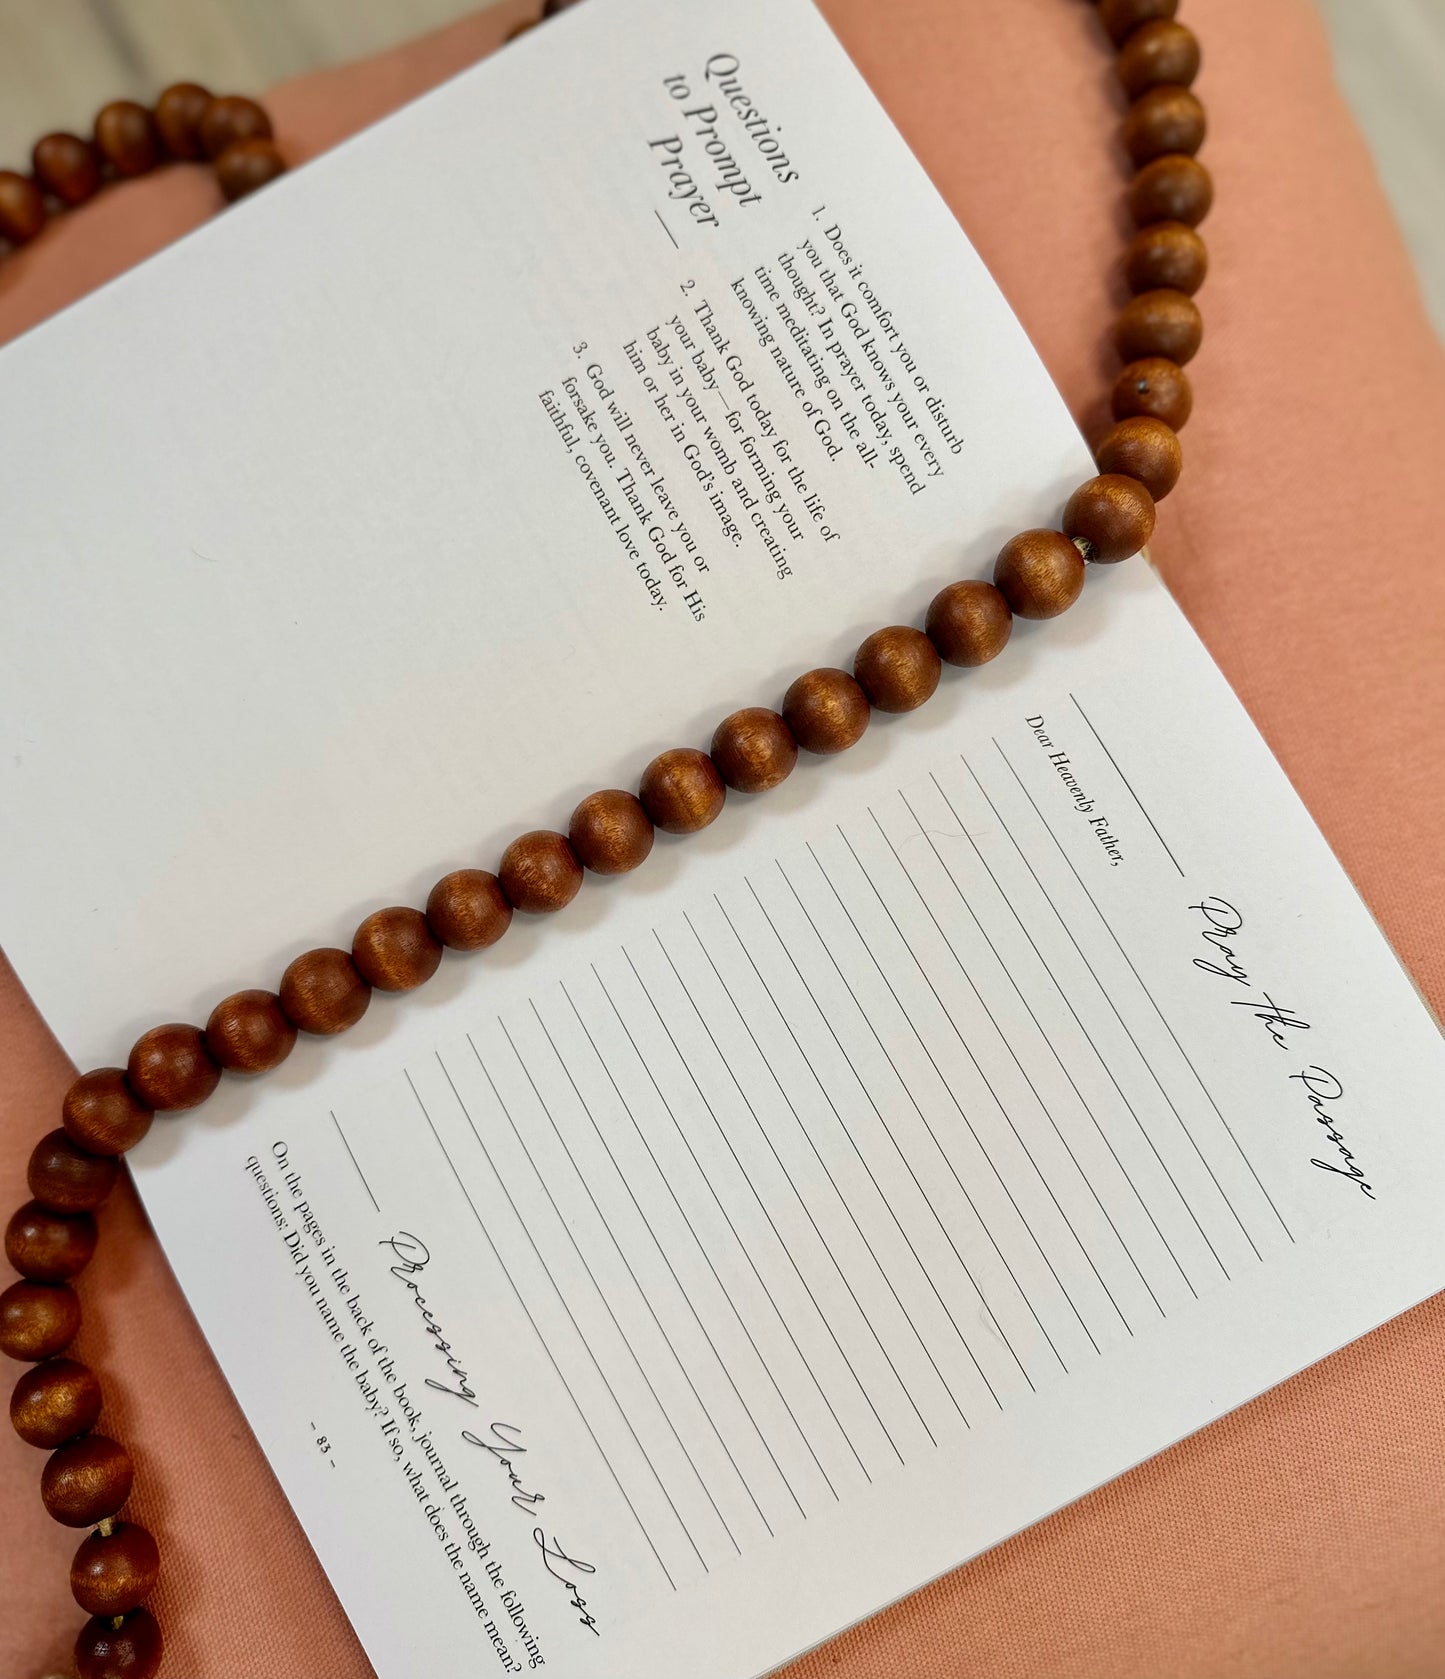 Questions
to Prompt
Prayer
1. Does it comfort you or disturb
you that God knows your every
thought? In prayer today, spend
time meditating on the all-
knowing nature of God.
2. Thank God today for the life of
your baby—for forming your
baby in your womb and creating
him or her in God's image.
3. God will never leave you or
forsake you. Thank God for His
faithful, covenant love today.
Pray the Passage
Dear Heavenly Father,
Processing Your Loss
On the pages in the back of the book, journal through the following
questions: Did you name the baby? If so, what does the name mean?
– 83 –